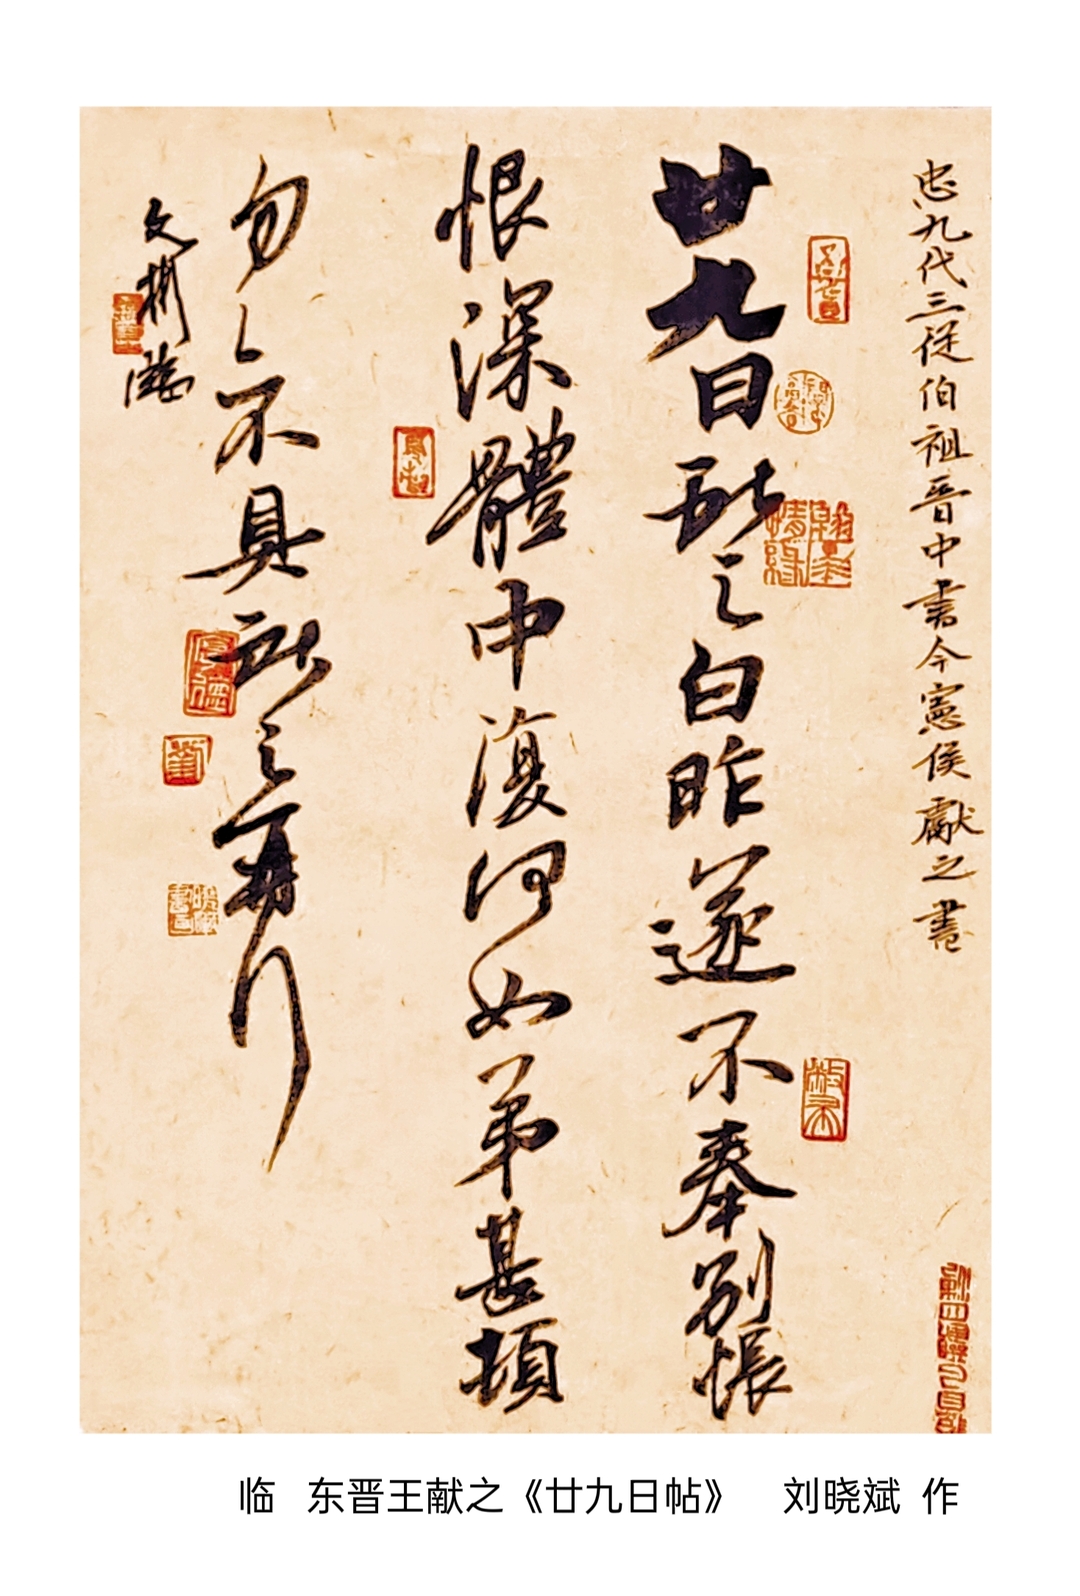 忠九代三從伯祖晋中書令憲侯獻之書
廿九日獻之白昨遂不奉別悵
恨深體中復何如弟甚頓
匆匆不具獻之再行
文彬臨
临 东晋王献之《廿九日帖》 刘晓斌 作